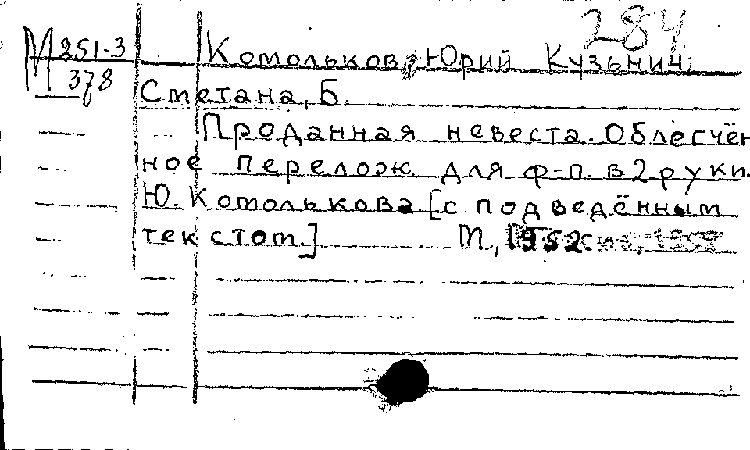 284
М 251-3
378
Комольков, Юрий Кузьмич.
Сметана, Б.
Проданная невеста. Облегчён
ное перелож. для ф-п. в 2 руки.
Ю. Комолькова [с подведённым
текстом]
М., 1952